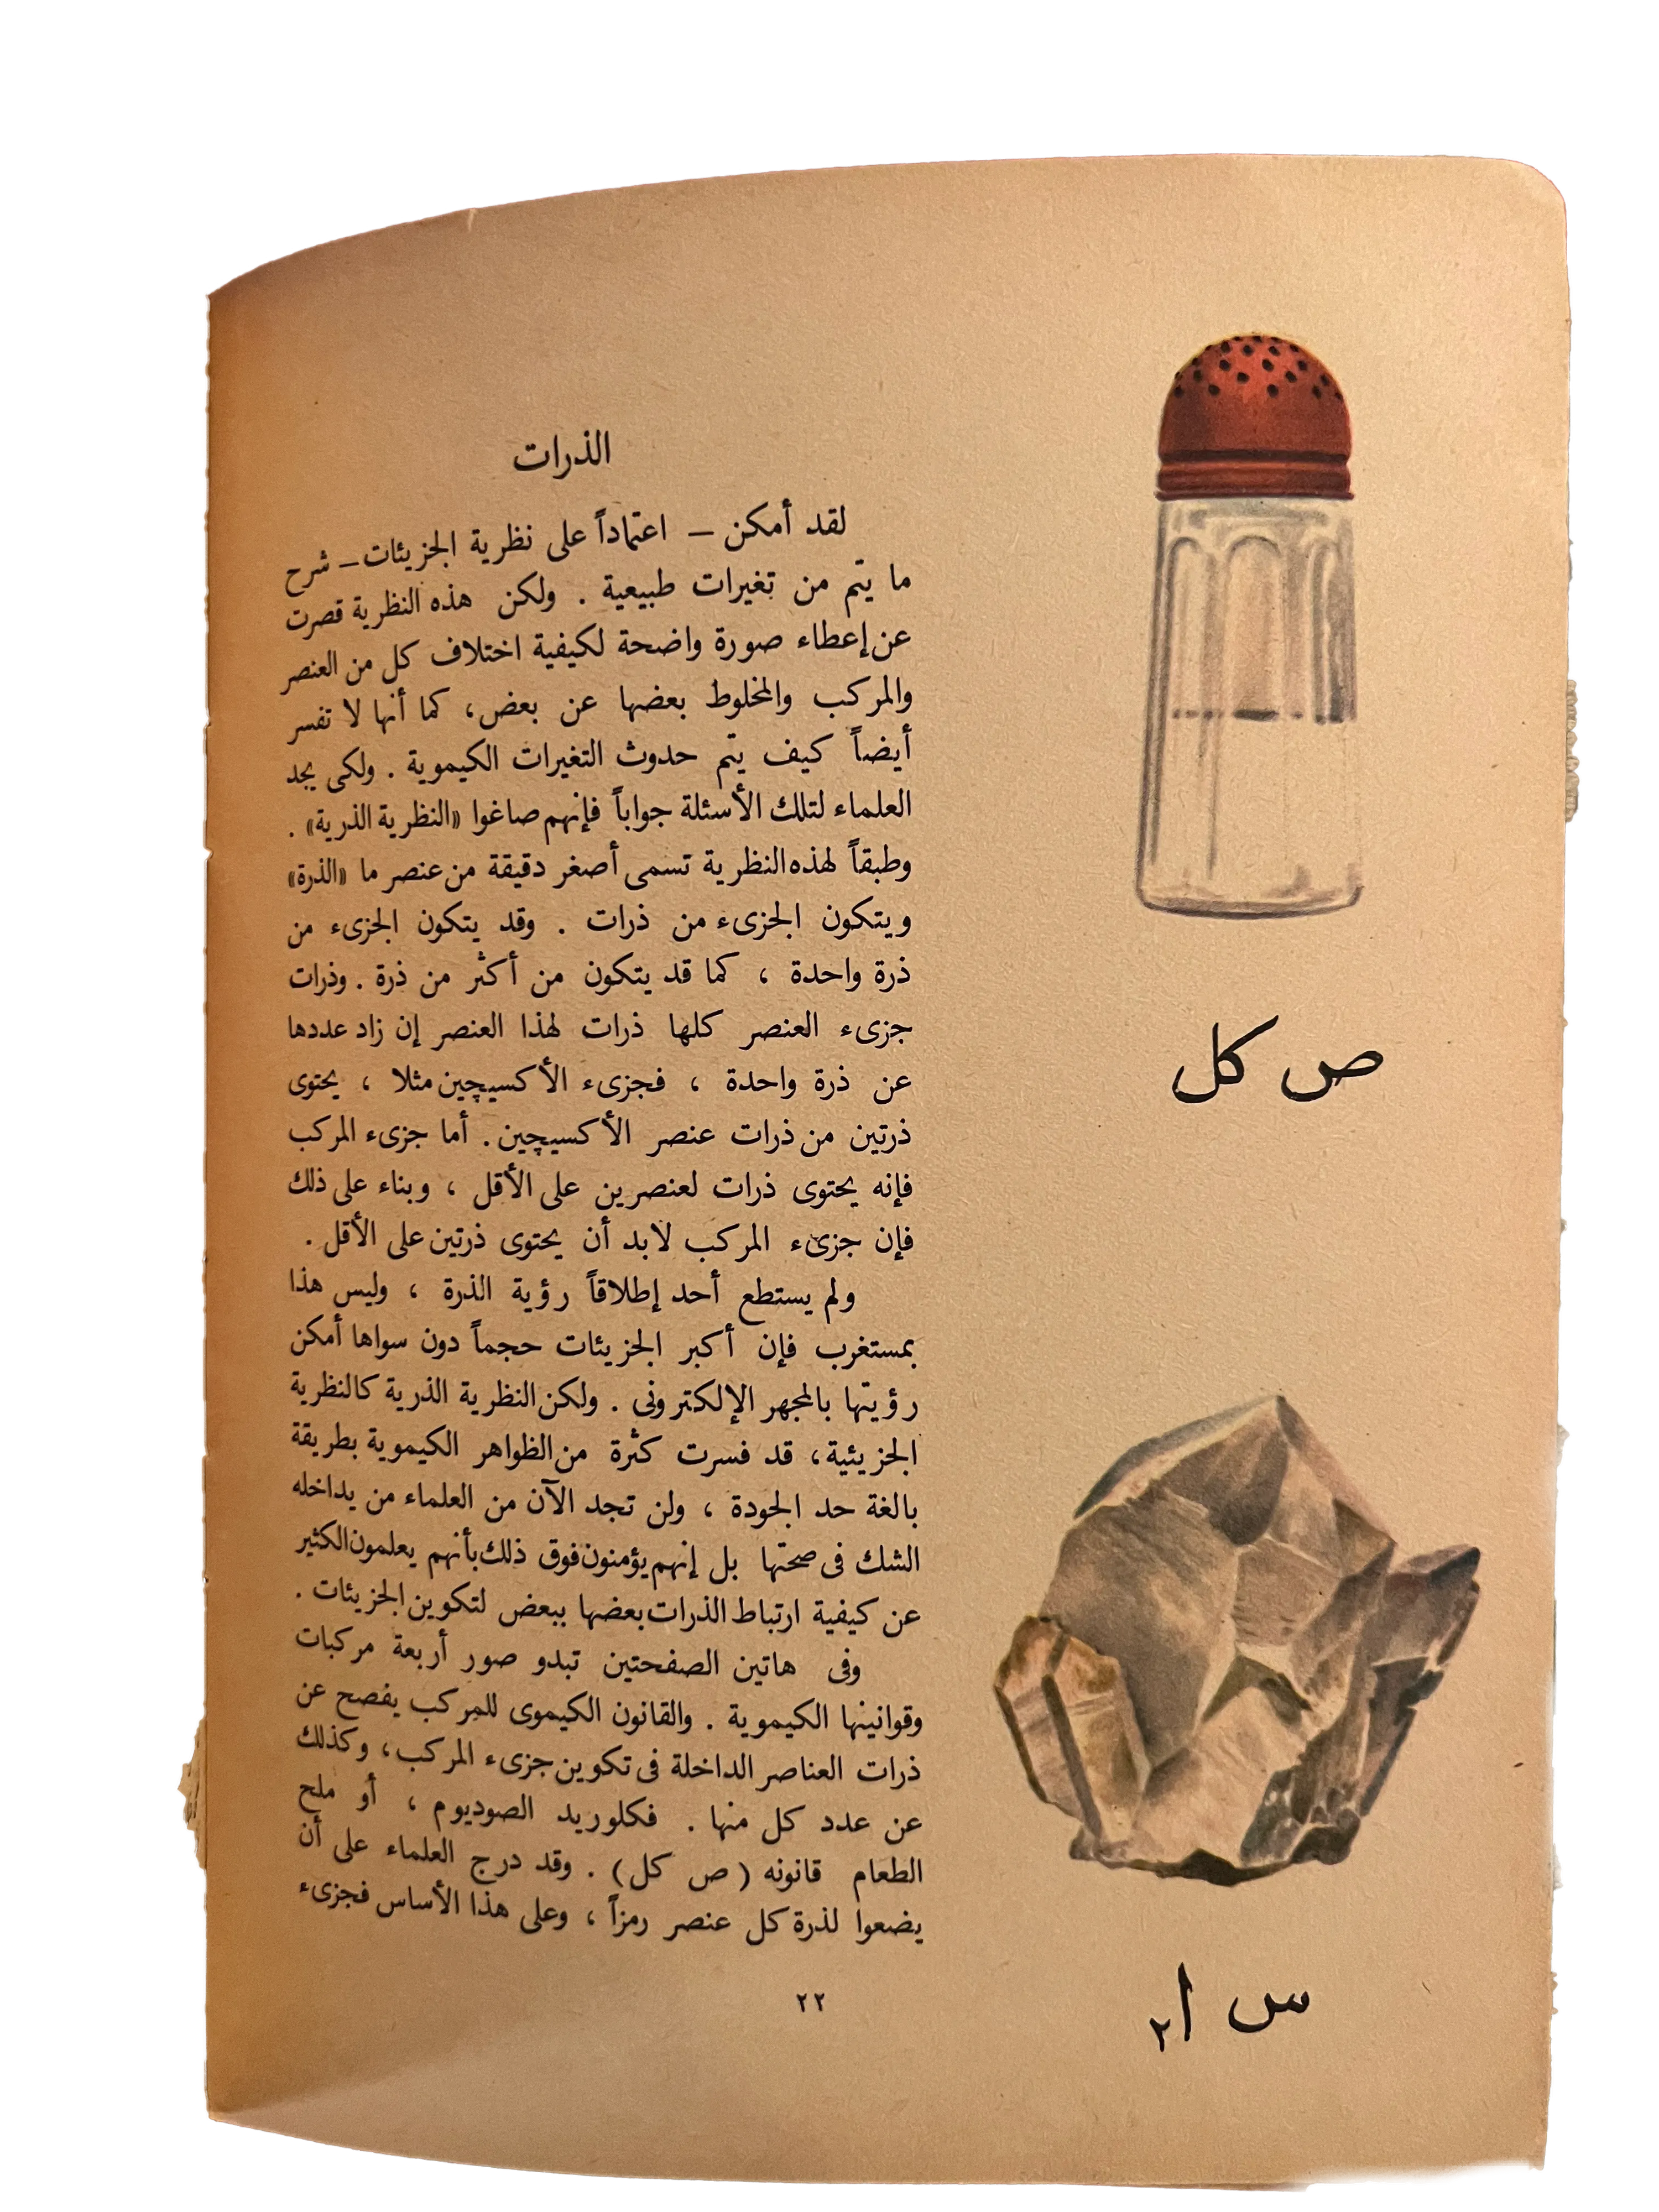 الذرات
لقد أمكن – اعتماداً على نظرية الجزيئات – شرح
ما يتم من تغيرات طبيعية . ولكن هذه النظرية قصرت
عن إعطاء صورة واضحة لكيفية اختلاف كل من العنصر
والمركب والمخلوط بعضها عن بعض، كما أنها لا تفسر
أيضاً كيف يتم حدوث التغيرات الكيموية . ولكى يجد
العلماء لتلك الأسئلة جواباً فإنهم صاغوا «النظرية الذرية» .
وطبقاً لهذه النظرية تسمى أصغر دقيقة من عنصر ما «الذرة»
ويتكون الجزىء من ذرات . وقد يتكون الجزىء من
ذرة واحدة ، كما قد يتكون من أكثر من ذرة . وذرات
جزىء العنصر كلها ذرات لهذا العنصر إن زاد عددها
عن ذرة واحدة ، فجزىء الأكسيچين مثلا ، يحتوى
ذرتين من ذرات عنصر الأكسيچين . أما جزىء المركب
فإنه يحتوى ذرات لعنصرين على الأقل ، وبناء على ذلك
فإن جزىء المركب لابد أن يحتوى ذرتين على الأقل .
ولم يستطع أحد إطلاقاً رؤية الذرة ، وليس هذا
بمستغرب فإن أكبر الجزيئات حجماً دون سواها أمكن
رؤيتها بالمجهر الإلكترونى . ولكن النظرية الذرية كالنظرية
الجزيئية، قد فسرت كثرة من الظواهر الكيموية بطريقة
بالغة حد الجودة ، ولن تجد الآن من العلماء من يداخله
الشك فى صحتها بل إنهم يؤمنون فوق ذلك بأنهم يعلمون الكثير
عن كيفية ارتباط الذرات بعضها ببعض لتكوين الجزيئات .
وفى هاتين الصفحتين تبدو صور أربعة مركبات
وقوانينها الكيموية . والقانون الكيموى للمركب يفصح عن
ذرات العناصر الداخلة فى تكوين جزىء المركب، وكذلك
عن عدد كل منها . فكلوريد الصوديوم ، أو ملح
الطعام قانونه ( ص كل ) . وقد درج العلماء على أن
يضعوا لذرة كل عنصر رمزاً ، وعلى هذا الأساس فجزىء
٢٢
ص كل
س ا٢